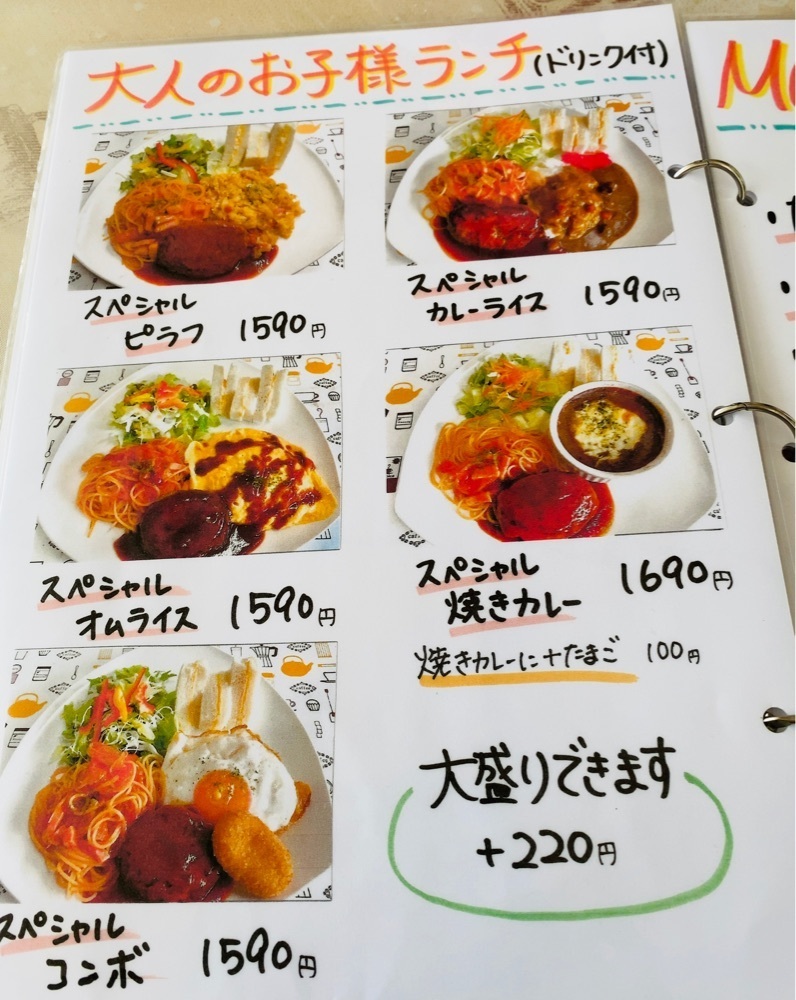 大人のお子様ランチ(ドリンク付)
スペシャル
ピラフ 1590円
スペシャル
カレーライス 1590円
スペシャル
オムライス 1590円
スペシャル
焼きカレー 1690円
焼きカレーに+たまご 100円
スペシャル
コンボ 1590円
大盛りできます
+220円